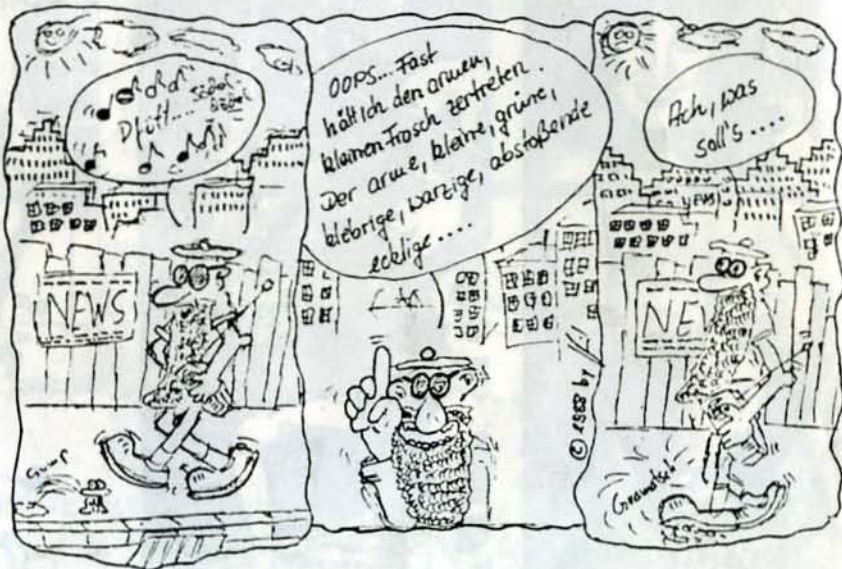 Dfütt....
NEWS
OOPS.... Fast
hätt ich den armen,
kleinen Frosch zertreten.
Der arme, kleine, grüne,
klebrige, warzige, abstoßende
ecklige....
© 1988 by
Ach, was
soll's ....
NEWS
NEW
Gramatsch